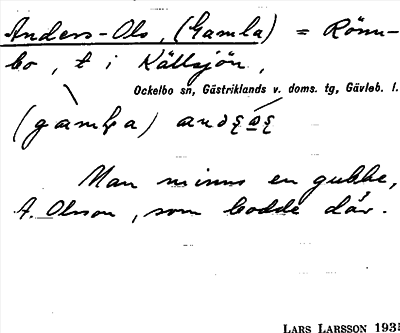 Anders-Ols, (Gamla) = Rönn-
bo, t i Källsjön,
Ockelbo sn, Gästriklands v. doms. tg, Gävleb. l.
(gamla)
Man minns en gubbe,
A. Olsson, som bodde där.
LARS LARSSON 193